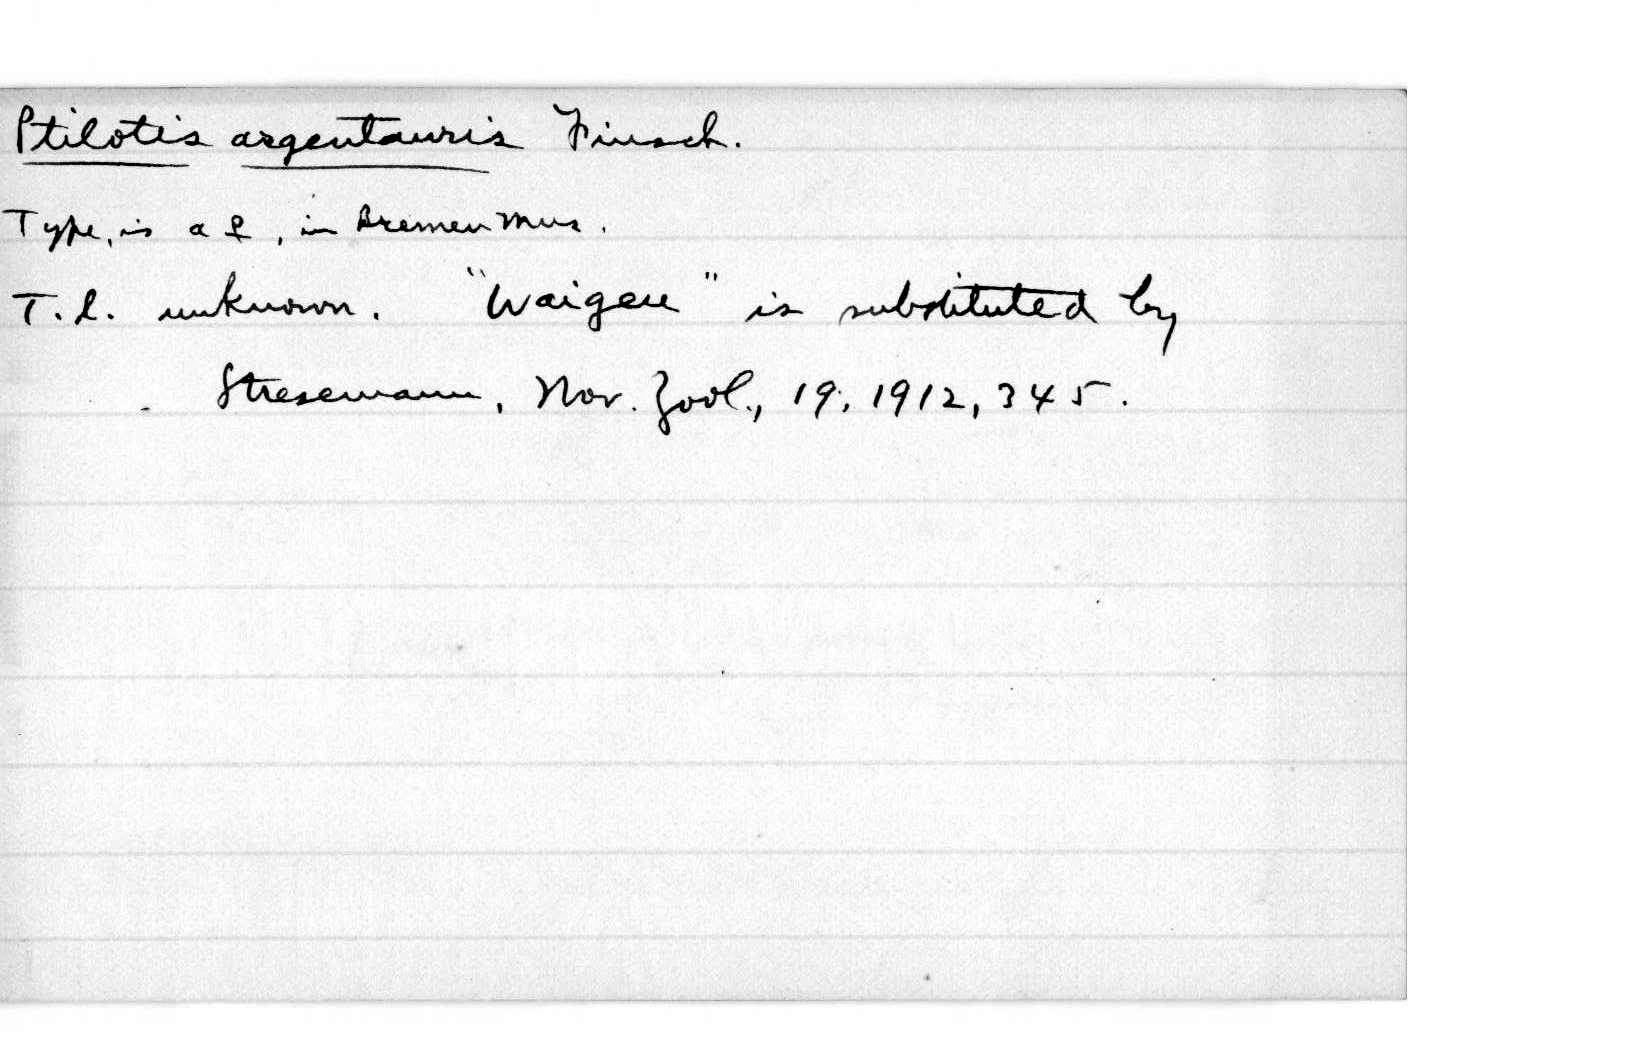 Ptilotis argentauris Finsch.
Type, is a ♀, in Bremen Mus.
T.l. unknown. "Waigeu" is substituted by
Stresemann, Nov. Zool., 19, 1912, 345.